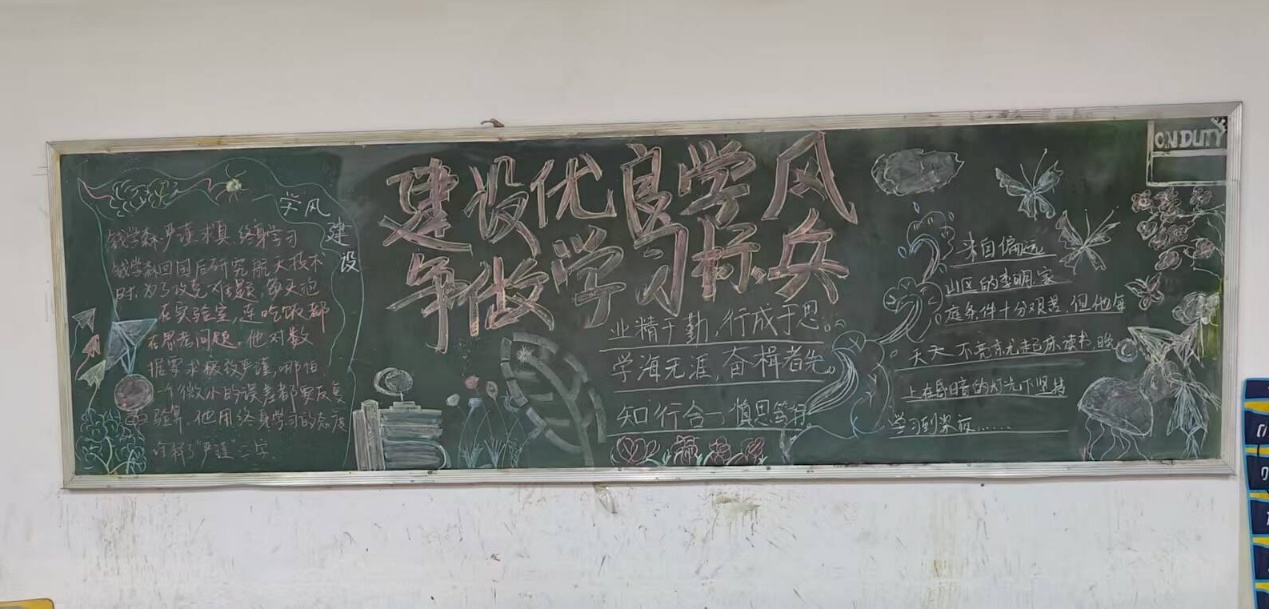 建设优良学风
争做学习标兵
学风建设
钱学森:严谨求真、终身学习
钱学森回国后研究航天技术
时,为了攻克难题,每天泡
在实验室,连吃饭都
在思考问题。他对数
据要求极致严谨,哪怕
一个微小的误差都要反复
验算。他用终身学习的态度
诠释了严谨二字。
业精于勤,行成于思。
学海无涯,奋楫者先。
知行合一 慎思笃行
来自偏远
山区的李明,家
庭条件十分艰苦,但他每
天天不亮就起床读书,晚
上在昏暗的灯光下坚持
学习到深夜……
ON DUTY